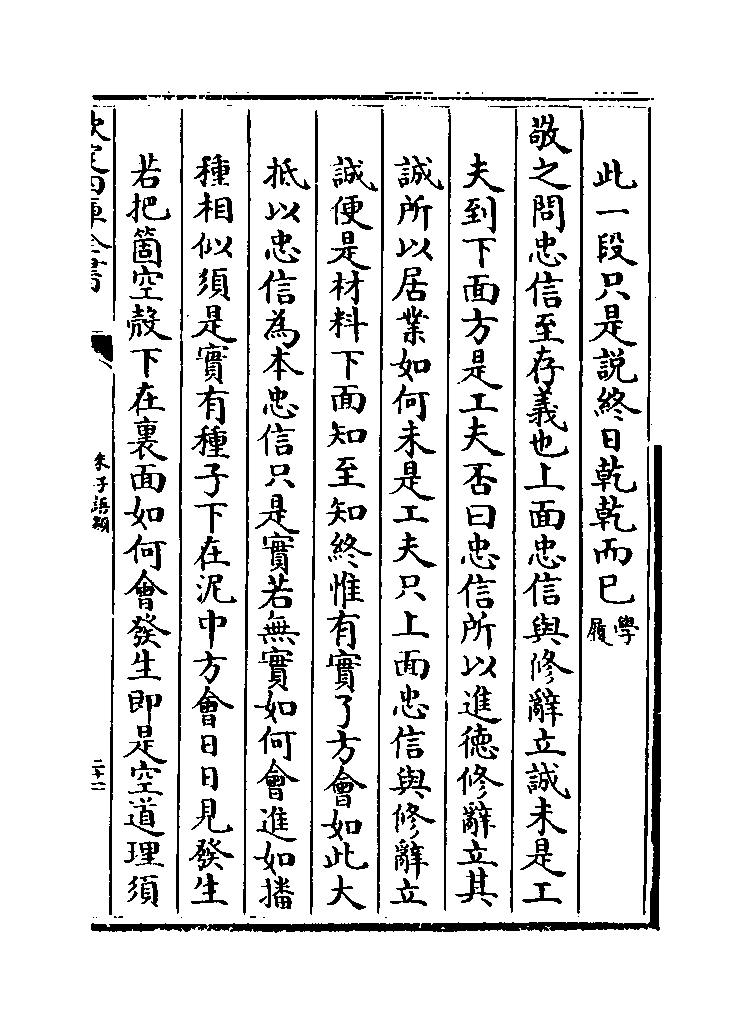 此一段只是説終日乾乾而已學履
敬之問忠信至存義也上面忠信與修辭立誠未是工
夫到下面方是工夫否曰忠信所以進德修辭立其
誠所以居業如何未是工夫只上面忠信與修辭立
誠便是材料下面知至知終惟有實了方會如此大
抵以忠信為本忠信只是實若無實如何會進如播
種相似須是實有種子下在泥中方會日日見發生
若把箇空殻下在裏面如何會發生即是空道理須
欽定四庫全書
朱子語類
二十一